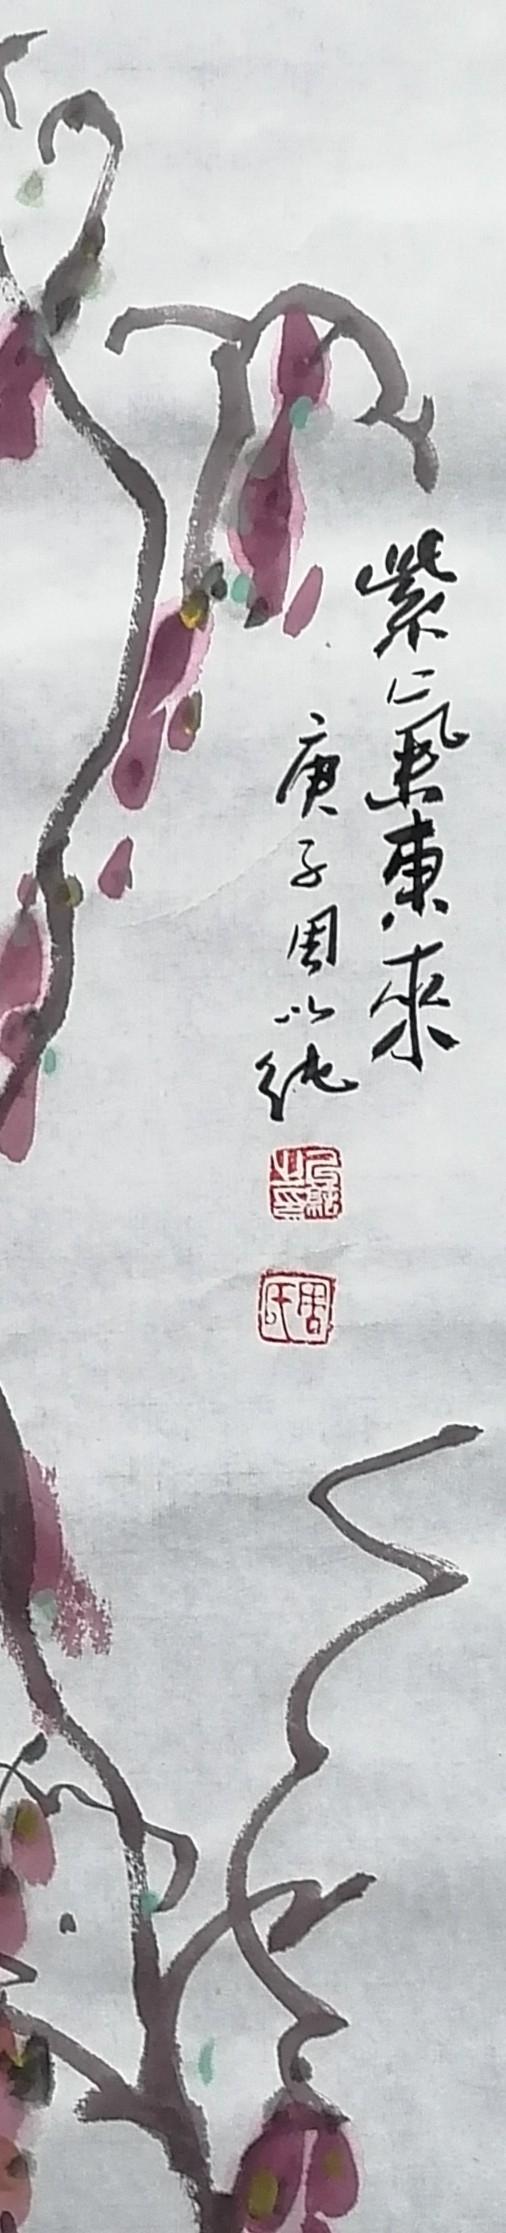 紫气東來
庚子周以纯
周氏